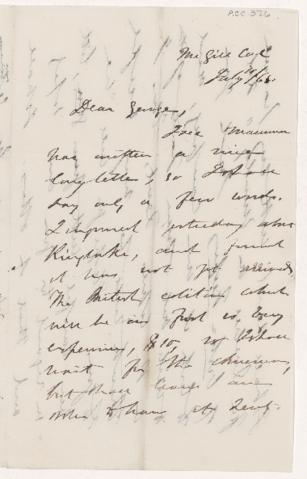 ACC-576
McGill Coll
July /66
Dear George,
Dear Mamma
has written a nice
long letter, so I shall
say only a few words.
I inquired yesterday about
Kinglake, and found
it was not yet arrived.
The British edition which
will be in first is very
expensive, $10, so
wait for the American,
but have
to have it sent